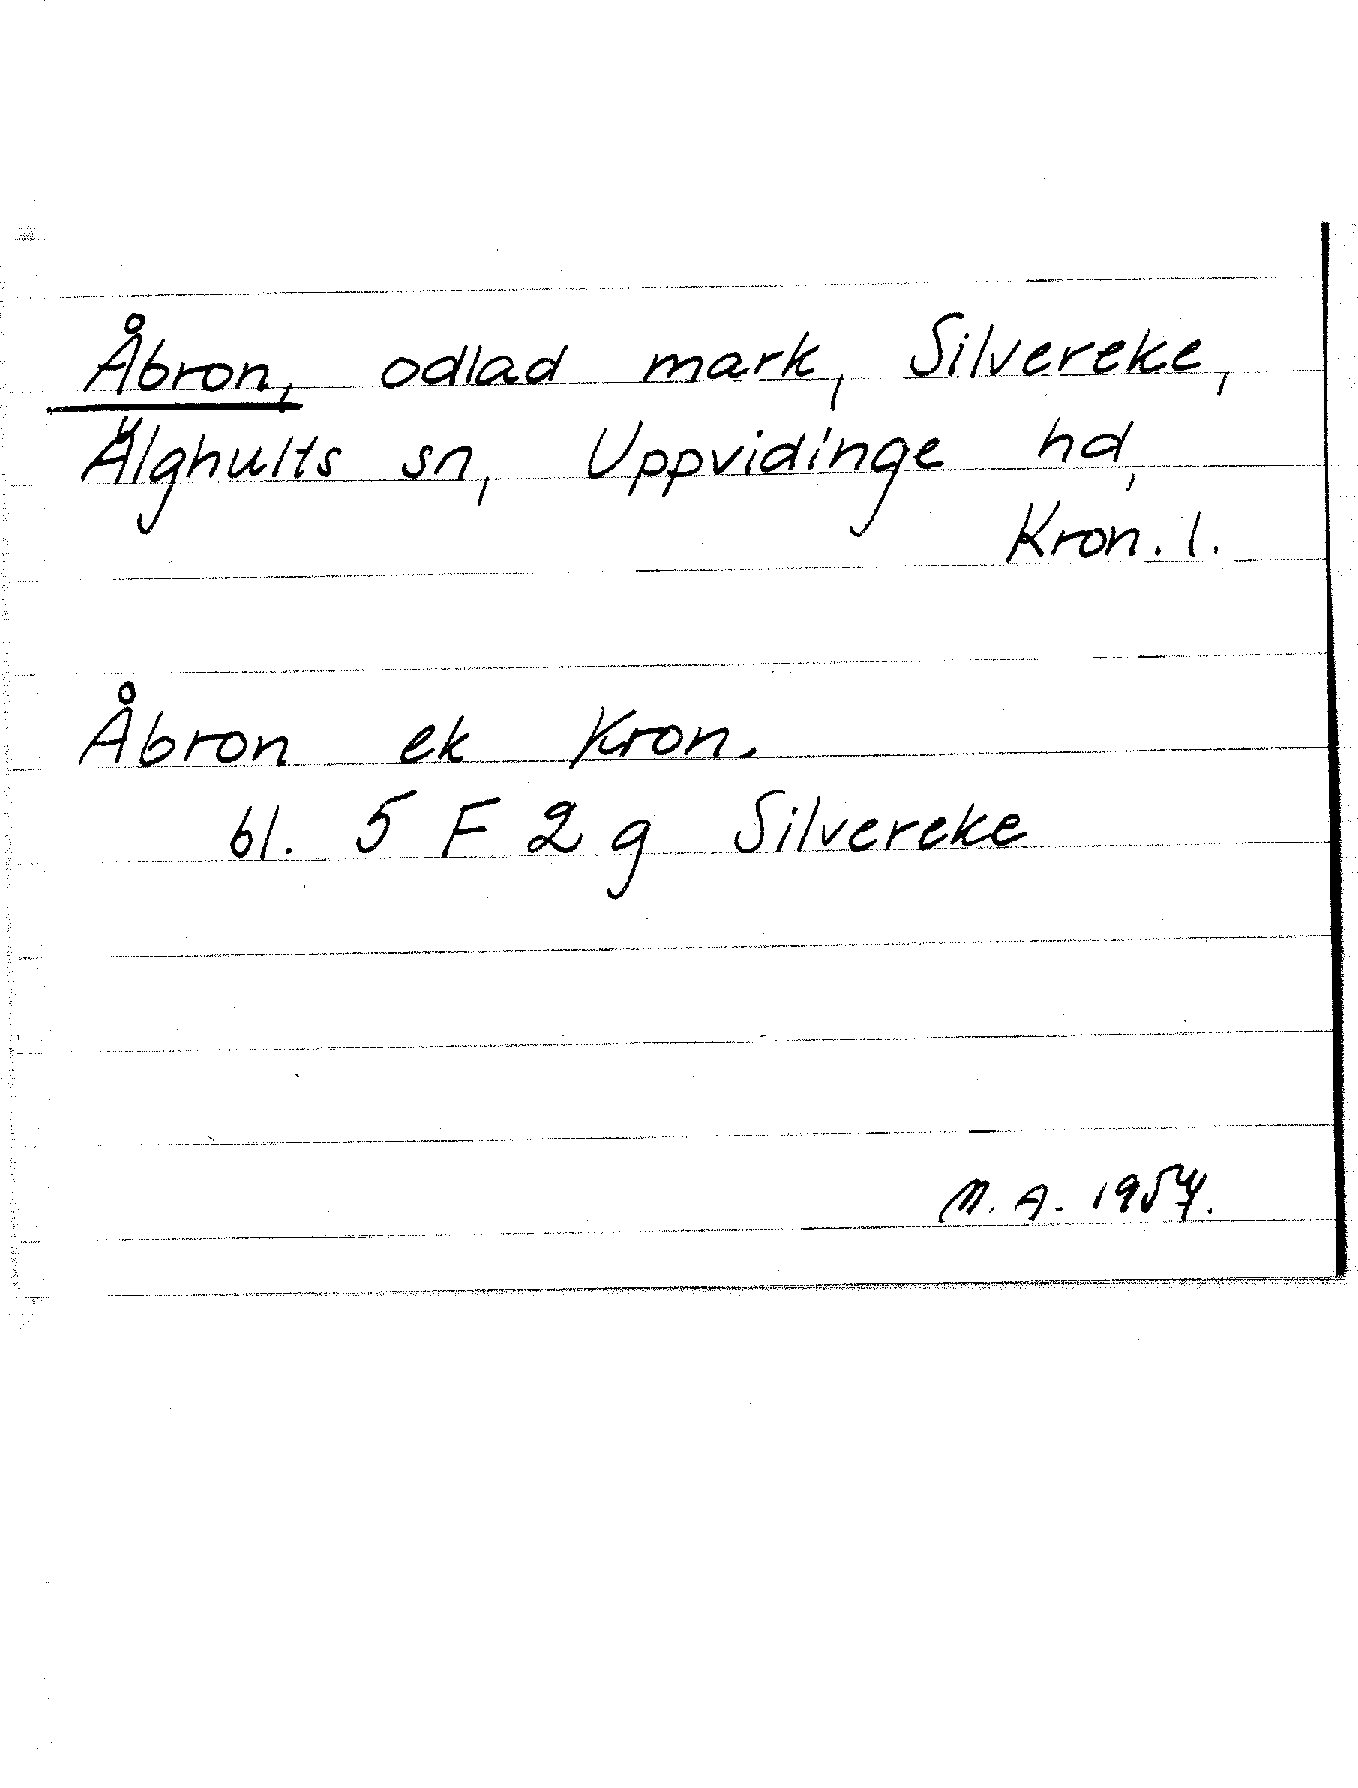 Åbron, odlad mark, Silvereke,
Älghults sn, Uppvidinge hd,
Kron. l.
Åbron ek Kron.
bl. 5 F 2 g Silvereke
M. A. 1954.